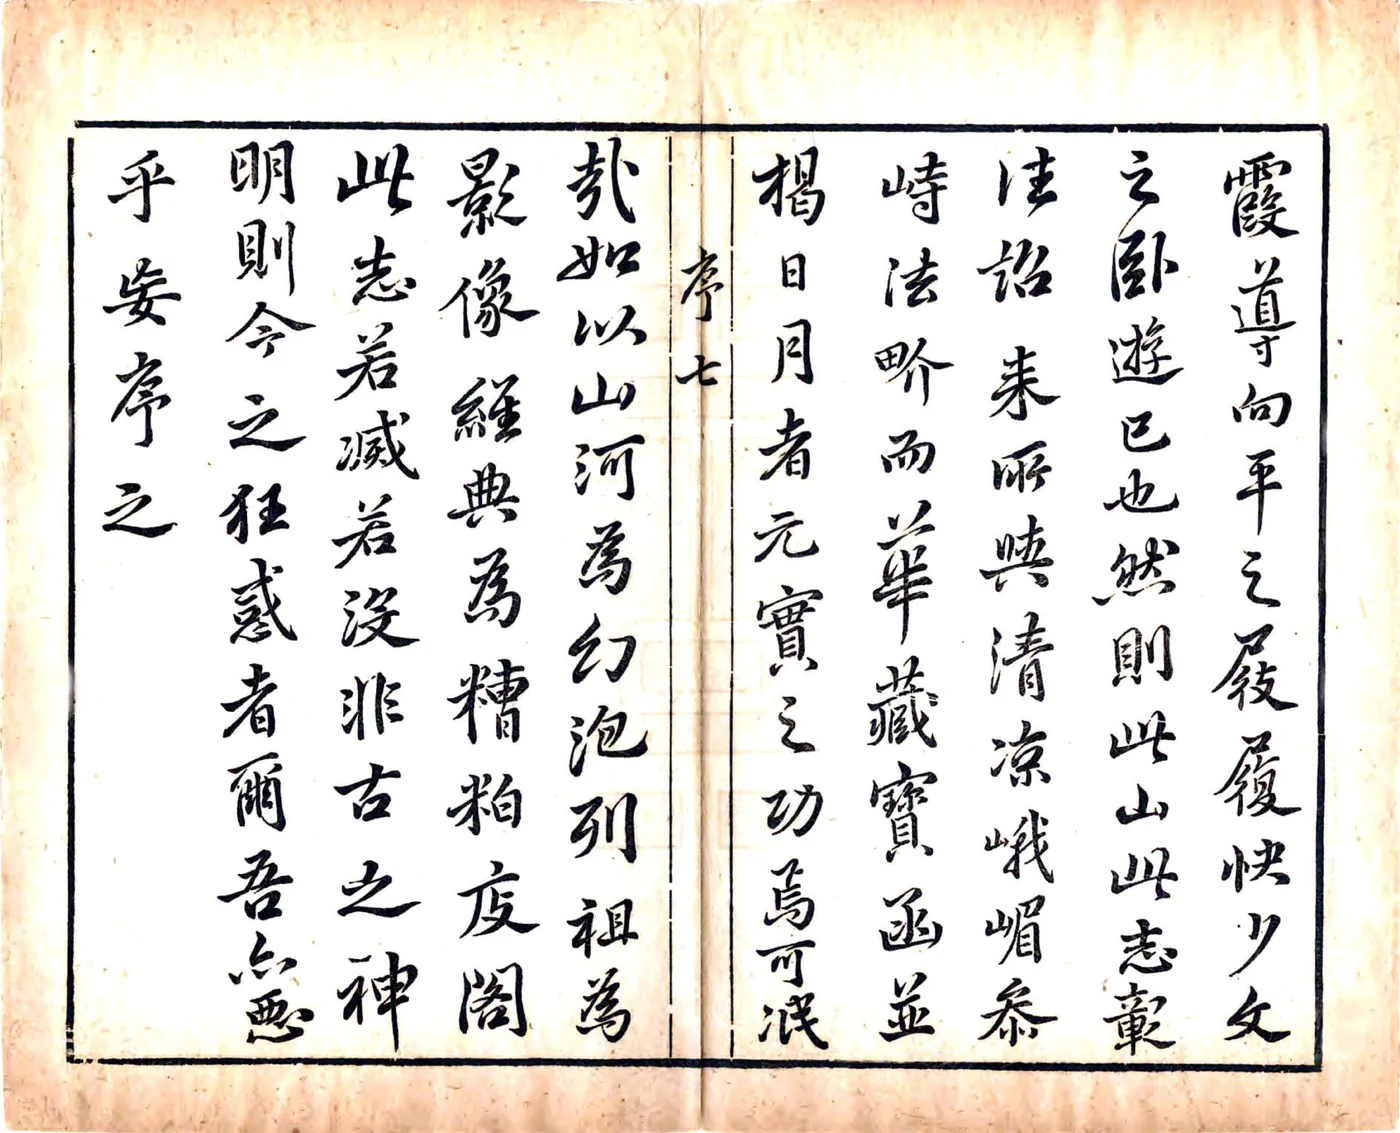 霞導向平之屐履快少文
之臥遊已也然則此山此志彰
往詔来所與清涼峨嵋叅
峙法界而華藏寶函並
揭日月者元實之功焉可泯
序七
哉如以山河為幻泡列祖為
影像經典為糟粕庋閣
此志若滅若沒非古之神
明則今之狂惑者爾吾亦悪
乎妄序之